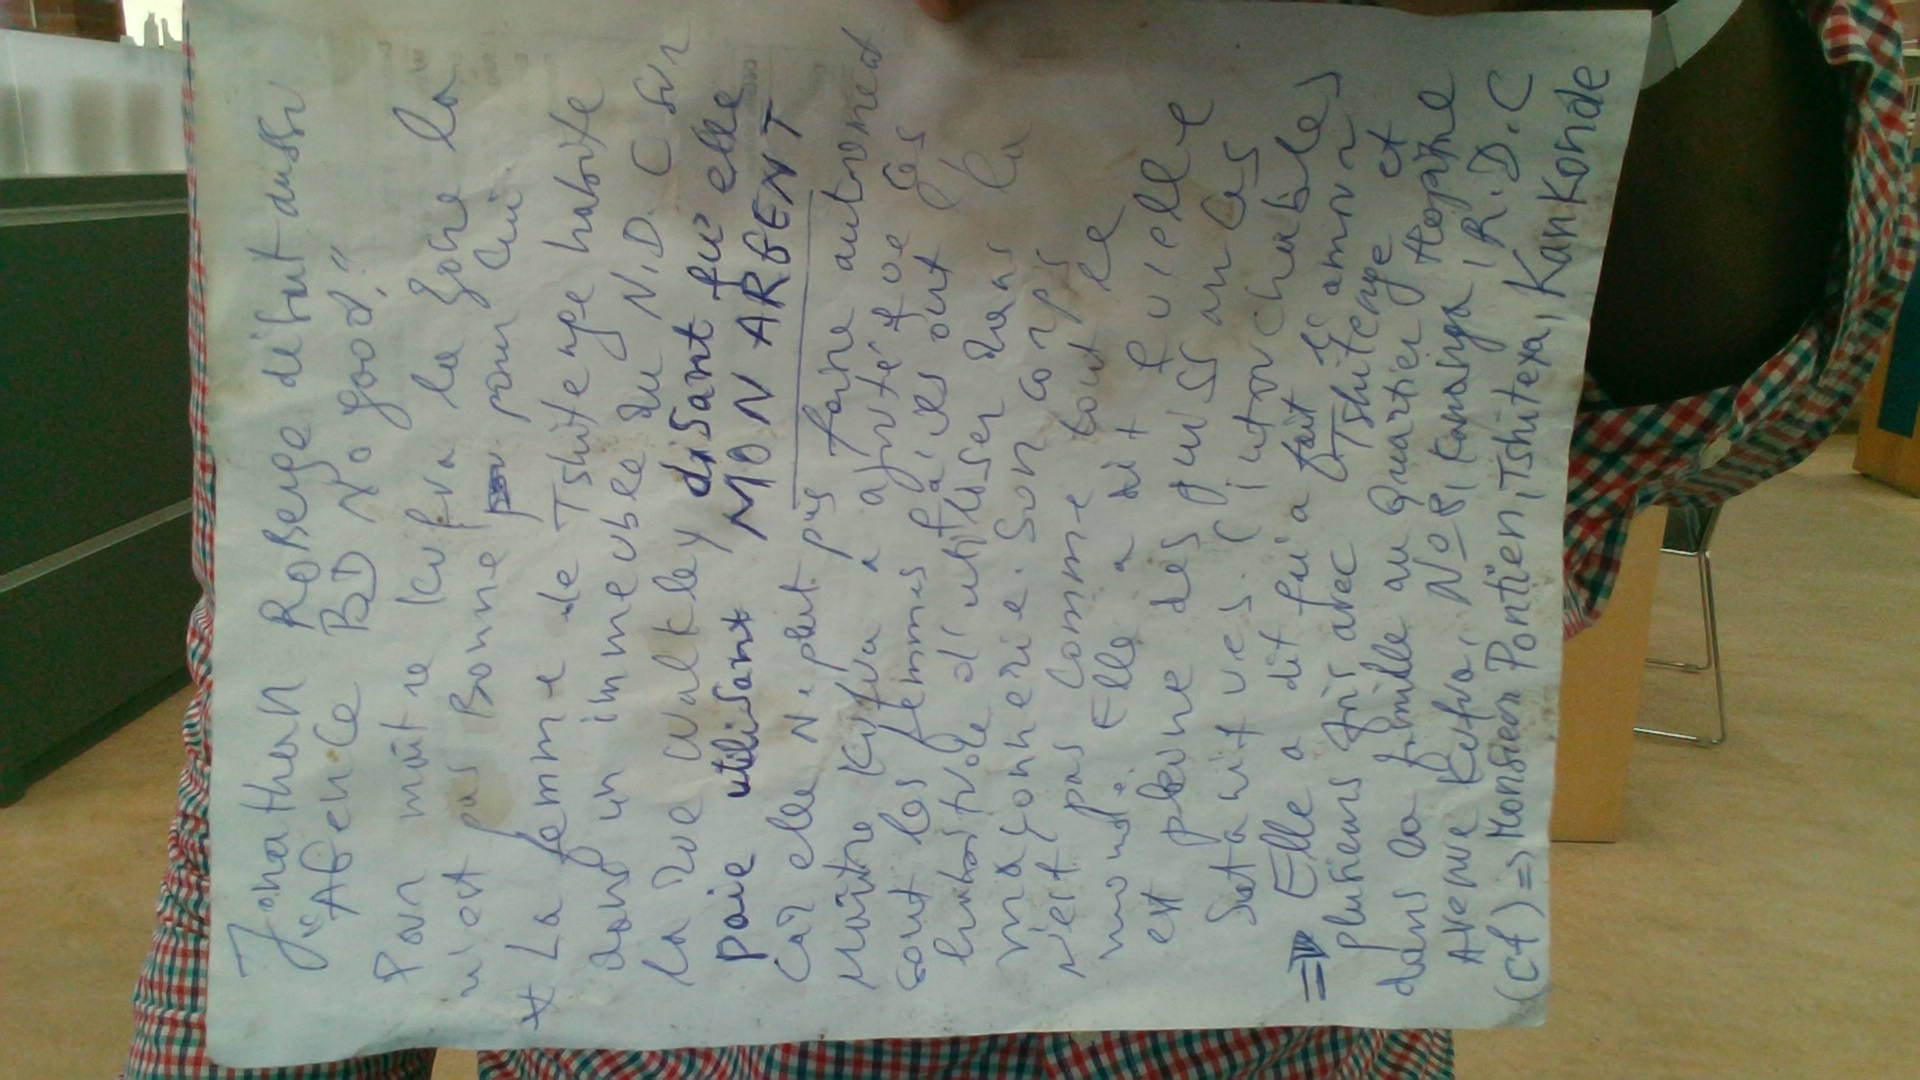 Jonathan Roberge dibut aussi
"AGENCE BD No good."
Pour maître Kufva la gone la
n'est pas Bonne pour Cui.
* La femme de Tshitenge habite
dans un immeuble du N.D.C sur
la rue Walkley disant que elle
paie utilisant MON ARGENT
Car elle N.peut pas faire autrement
Maître Kufua a ajouté que ças
sont les femmes faciles ont ça
habitude d'utiliser dans la
maçonnerie. Son corps
n'est pas comme tout le
monde. Elle a dit qu'elle
est pleine des puissances
Satanit ves. (intouchables
⇒ Elle a dit qu'a fait l'amour
plusieurs fois avec Tshitenge et
dans sa famille au Quartier Hopine
Avenue Kufua, No 8, Kananga, R.D.C
(Cf) ⇒ Monsieur Pontien, Tshitexa, Kankonde